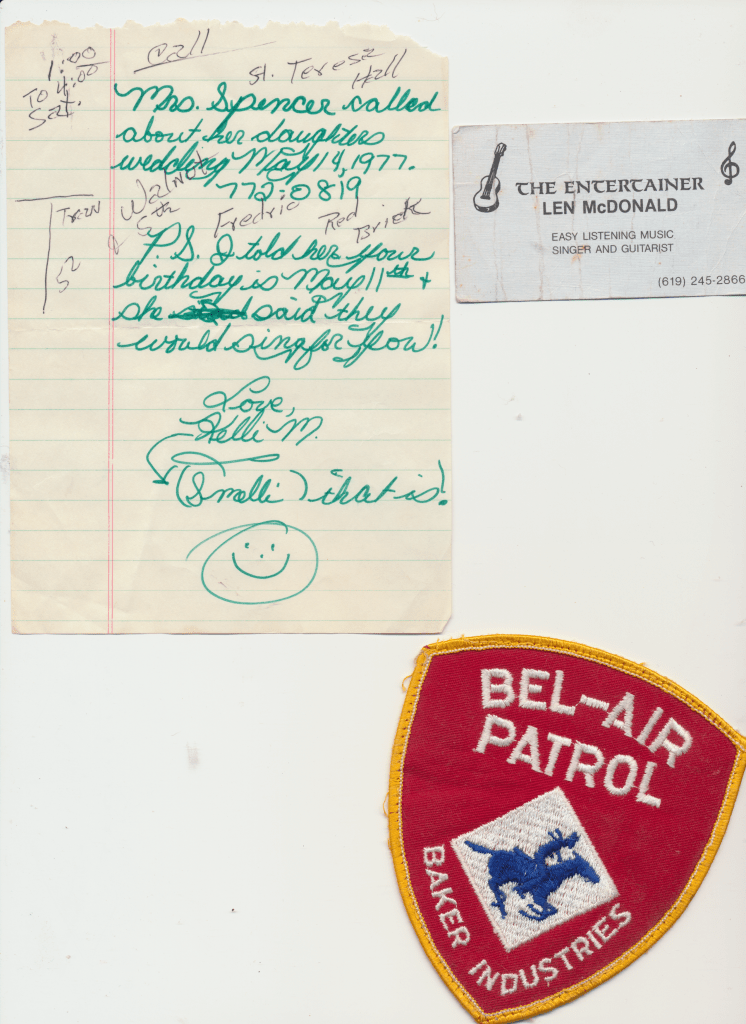 call
1:00
To 4:00
Sat.
St. Teresa
Hall
Mrs. Spencer called
about her daughters
wedding May 14, 1977.
772-0819
Walnut
& 5th
Fredric
Red
Brick
52
P.S. I told her your
birthday is May 11th &
she said they
would sing for you!
Love,
Kelli M.
(Smelli) that is!
THE ENTERTAINER
LEN McDONALD
EASY LISTENING MUSIC
SINGER AND GUITARIST
(619) 245-2866
BEL-AIR
PATROL
BAKER INDUSTRIES